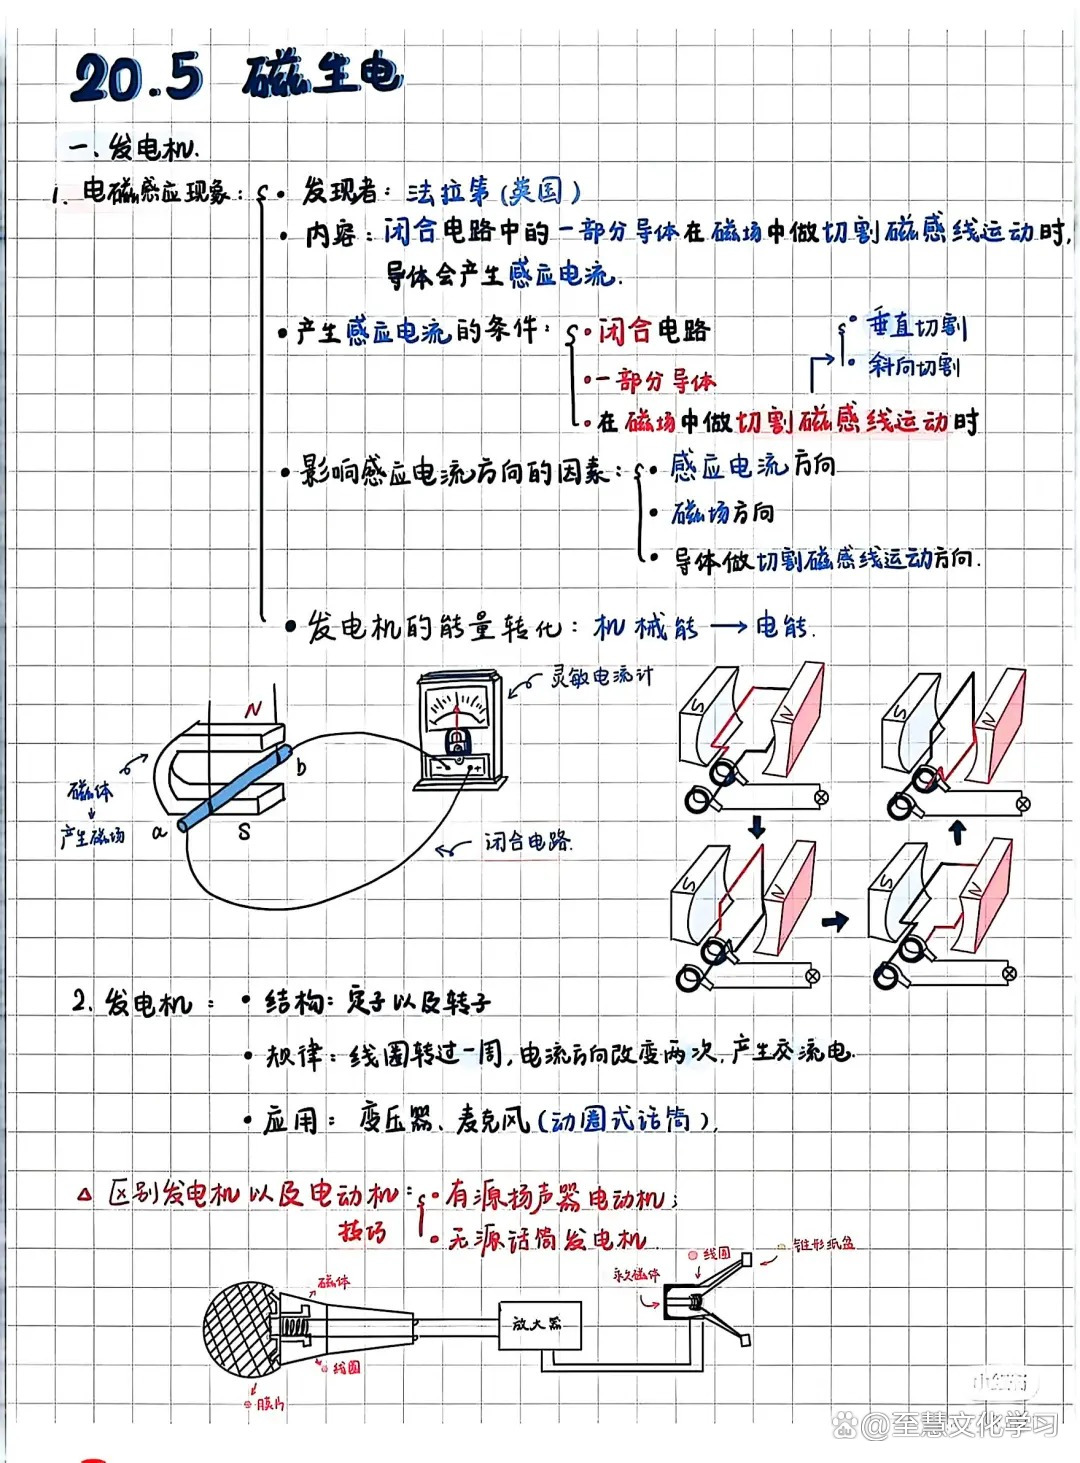 20.5 磁生电
一、发电机.
1. 电磁感应现象: • 发现者: 法拉第(英国)
• 内容: 闭合电路中的一部分导体在磁场中做切割磁感线运动时,
导体会产生感应电流.
• 产生感应电流的条件: • 闭合电路
• 垂直切割
• 斜向切割
• 一部分导体
• 在磁场中做切割磁感线运动时
• 影响感应电流方向的因素: • 感应电流方向
• 磁场方向
• 导体做切割磁感线运动方向.
• 发电机的能量转化: 机械能 → 电能.
灵敏电流计
N
b
磁体
产生磁场
a
S
闭合电路.
S N
S N
S N
S N
2. 发电机: • 结构: 定子以及转子
• 规律: 线圈转过一周, 电流方向改变两次, 产生交流电.
• 应用: 变压器、麦克风(动圈式话筒),
△ 区别发电机以及电动机: • 有源扬声器电动机;
技巧 • 无源话筒发电机
磁体
线圈
膜片
放大器
永久磁体
线圈
锥形纸盆
小红书
@至慧文化学习